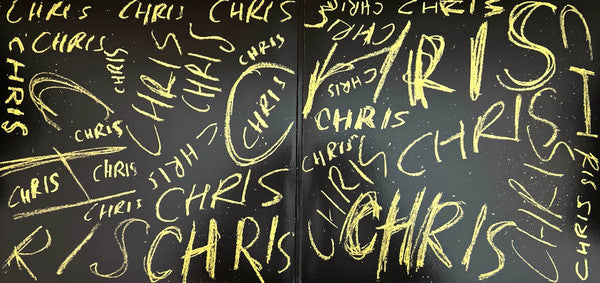 CHRIS CHRIS CHRIS
CHRIS
CHRIS
CHRIS
CHRIS
CHRIS
CHRIS
CHRIS
CHRIS
CHRIS
CHRIS
CHRIS
CHRIS
CHRIS
RIS
CHRIS
CHRIS
CHRIS
CHRIS
CHRIS
HRIS
CHRIS
CHRIS
CHRIS
CHRIS
CHRIS
CHRIS
CHRIS
RIS
CHRIS